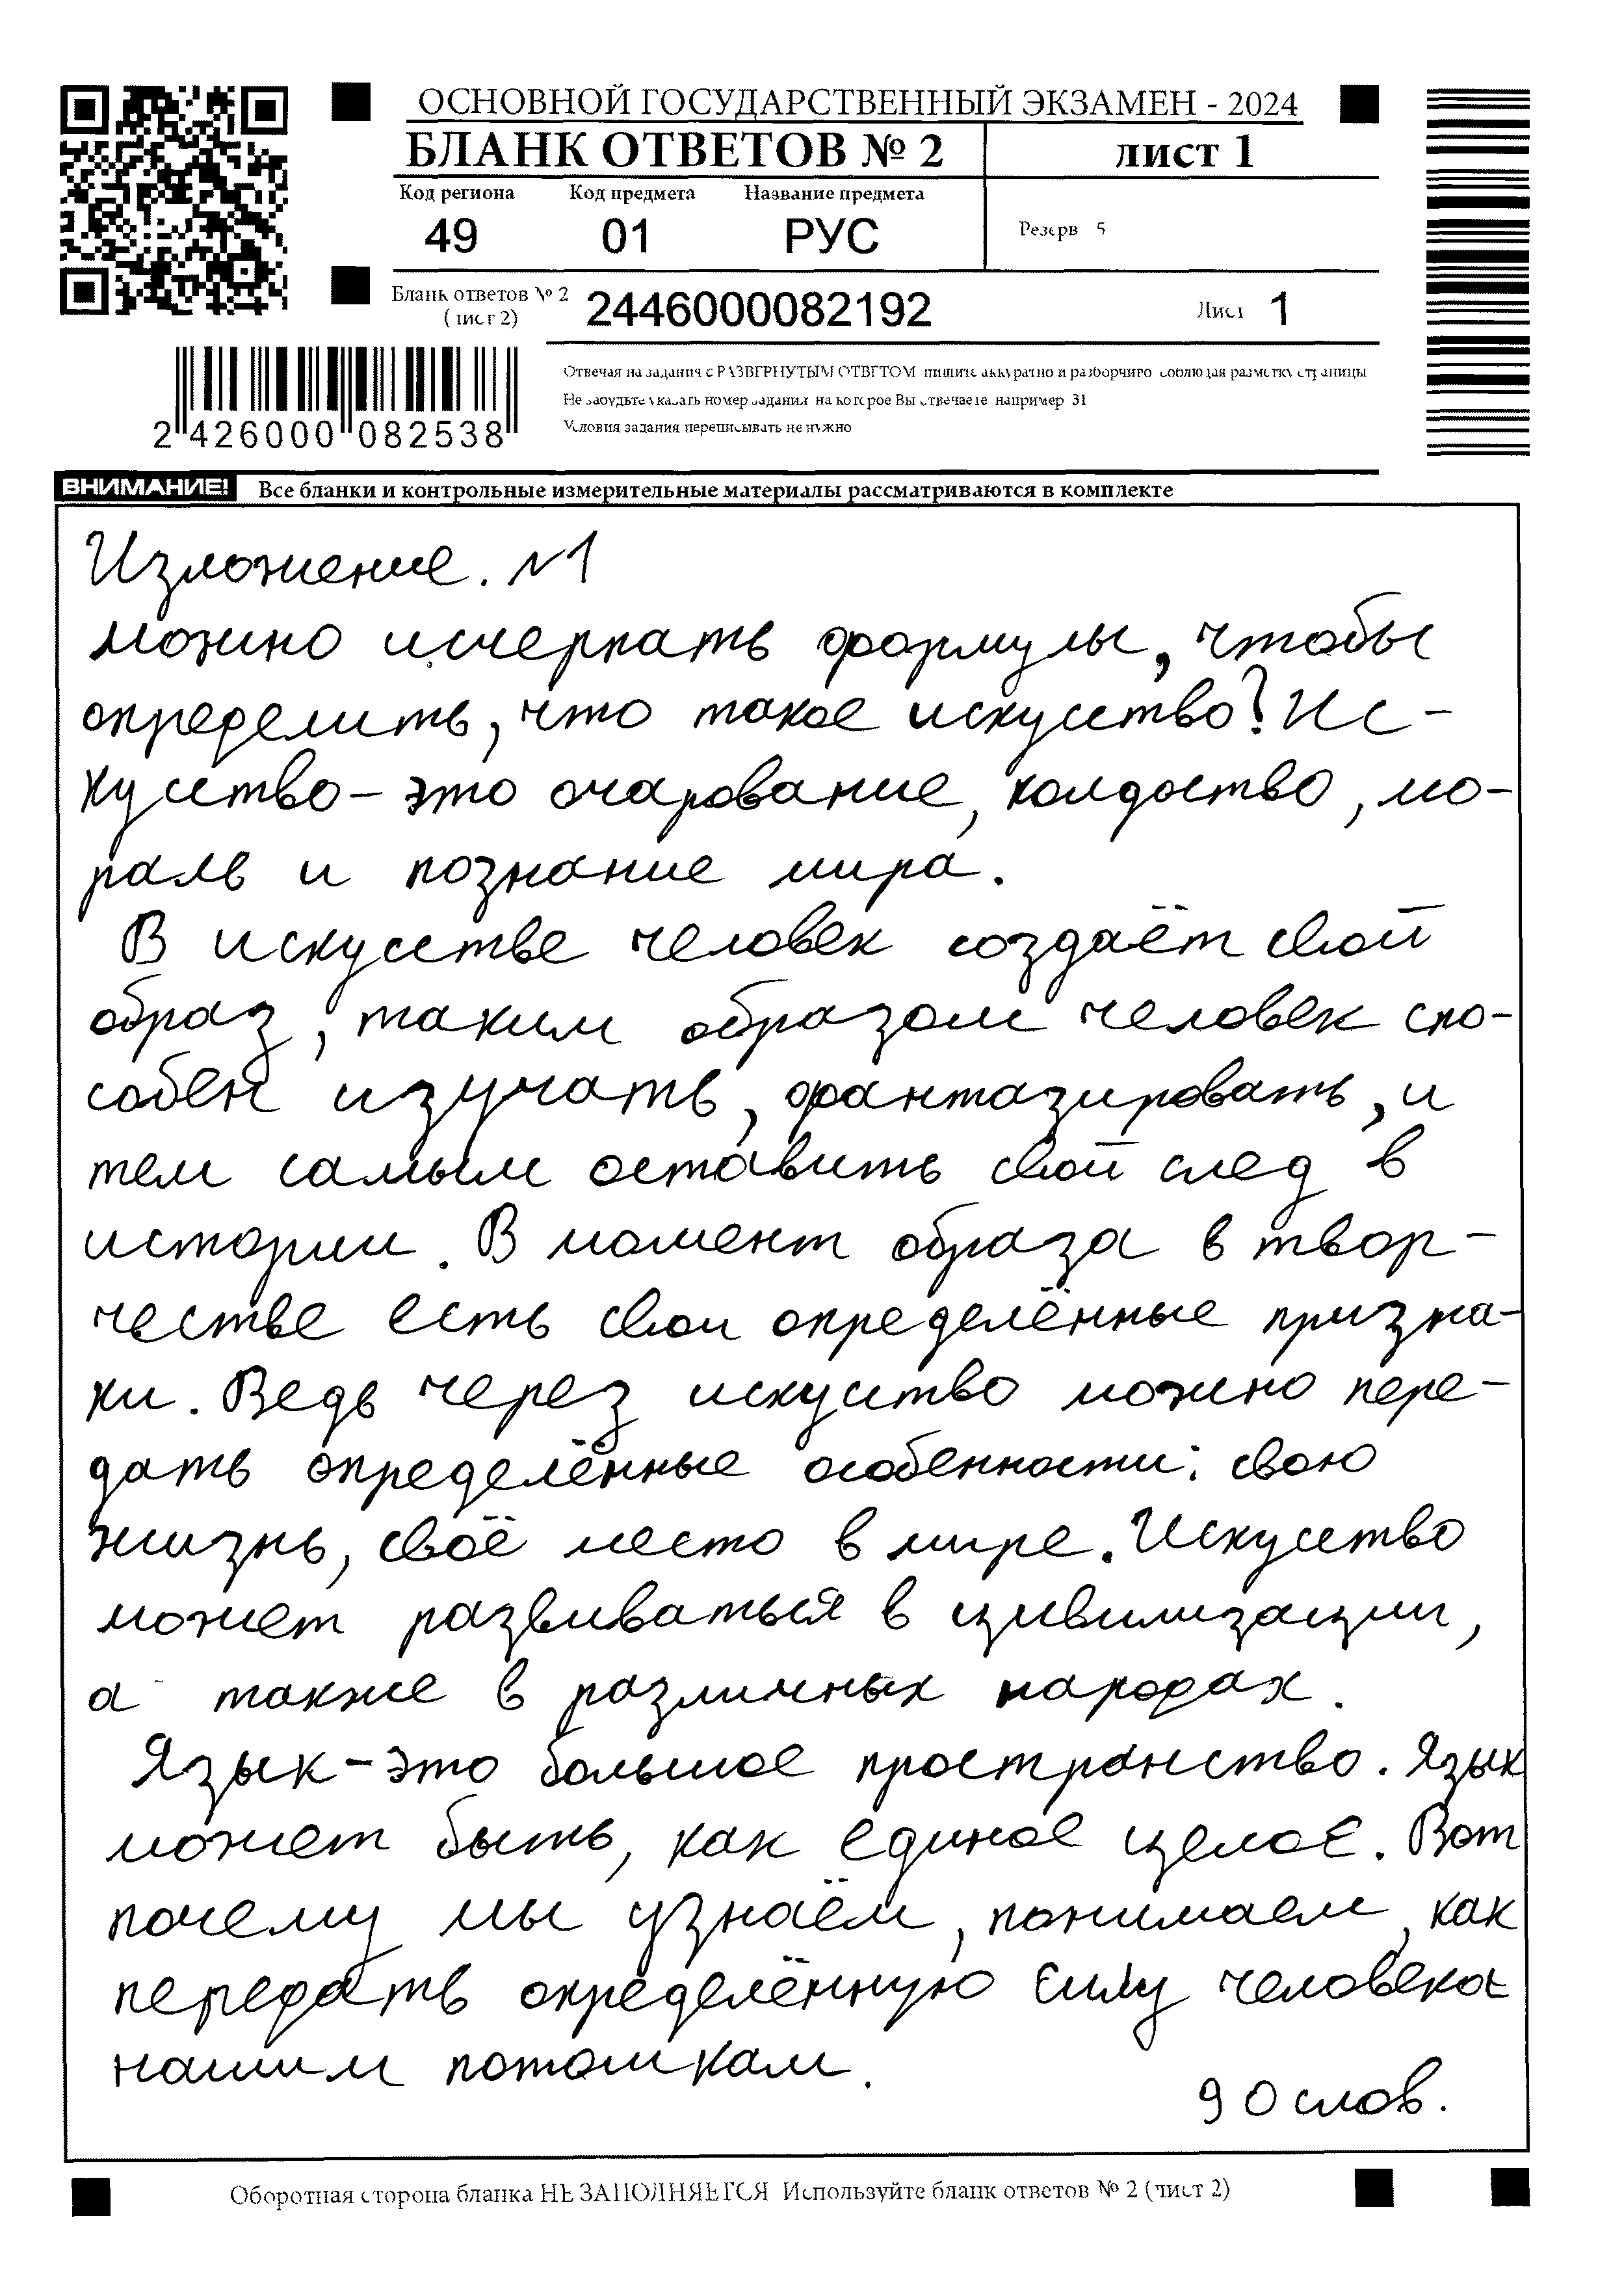 ОСНОВНОЙ ГОСУДАРСТВЕННЫЙ ЭКЗАМЕН - 2024
БЛАНК ОТВЕТОВ № 2
ЛИСТ 1
Код региона Код предмета Название предмета
49 01 РУС
Резерв 5
Бланк ответов № 2
(лист 2)
2446000082192
Лист 1
2 426000 082538
Отвечая на задания с РАЗВЕРНУТЫМ ОТВЕТОМ пишите аккуратно и разборчиво соблюдая разметку страницы
Не забудьте указать номер задания на которое Вы отвечаете например 31
Условия задания переписывать не нужно
ВНИМАНИЕ! Все бланки и контрольные измерительные материалы рассматриваются в комплекте
Изложение. №1
можно исчерпать формулы, чтобы
определить, что такое искусство? Ис-
кусство - это очарование, колдоство, мо-
раль и познание мира.
В искусстве человек создаёт свой
образ, таким образом человек спо-
собен изучать, фантазировать, и
тем самым оставить свой след в
истории. В момент образа в твор-
честве есть свои определённые призна-
ки. Ведь через искуство можно пере-
дать определённые особенности: свою
жизнь, своё место в мире. Искусство
может развиваться в цивилизации,
а также в различных народах.
Язык - это большое пространство. Язык
может быть, как единое целое. Вот
почему мы узнаём, понимаем, как
передать определённую силу человека
нашим потомкам.
90 слов.
Оборотная сторона бланка НЕ ЗАПОЛНЯЕТСЯ Используйте бланк ответов № 2 (лист 2)